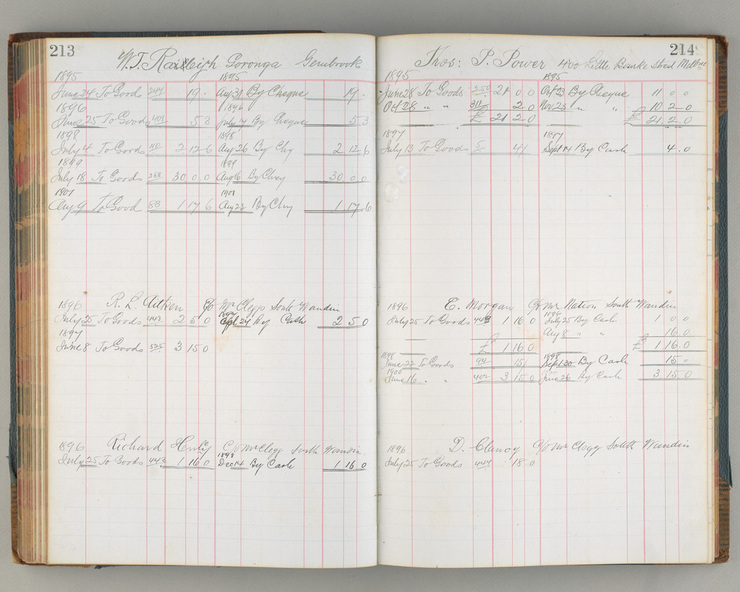 213
W.T. Raleigh Goronga Gembrook
1895 1895
June 24 To Good 19 - Aug 31 By Cheque 19 -
1896 1896
June 25 To Goods 5 3 July 7 By Cheque 5 3
1898 1898
July 4 To Goods 2 12 6 Aug 26 By Chq 2 12 6
July 18 To Goods 30 0 0 Aug 16 By Cheq 30 0 0
1901 1901
Aug 9 To Good 88 1 17 6 Aug 22 By Chq 1 17 6
1896 R. L. Aitken C/o Mr Clegg South Wandin
July 25 To Goods 443 2 5 0 Sept 24 By Cash 2 5 0
1897
June 8 To Goods 525 3 15 0
1896 Richard C/o Mr Clegg South Wandin
July 25 To Goods 442 1 16 0 Dec 14 By Cash 1 16 0
214
Thos: P. Power 400 Little Bourke Street Melbne
1895 1895
June 28 To Goods 21 0 0 Oct 23 By Cheque 11 0 0
Oct 28 " " 2 0 Nov 23 " " 10 2 0
£ 21 2 0 21 2 0
1897 1897
July 13 To Goods 4/ Sept 14 By Cash 4 0
1896 E. Morgan C/o Mr Nation South Wandin
July 25 To Goods 444 1 16 0 July 25 By Cash 1 0 0
Aug 8 " 16 0
£ 1 16 0 £ 1 16 0
1898 1898
June 22 To Goods 94 15/ Sept 20 By Cash 15 0
1900
June 16 " 402 3 15 0 June 26 By Cash 3 15 0
1896 D. Clancy C/o Mr Clegg South Wandin
July 25 To Goods 444 18 0